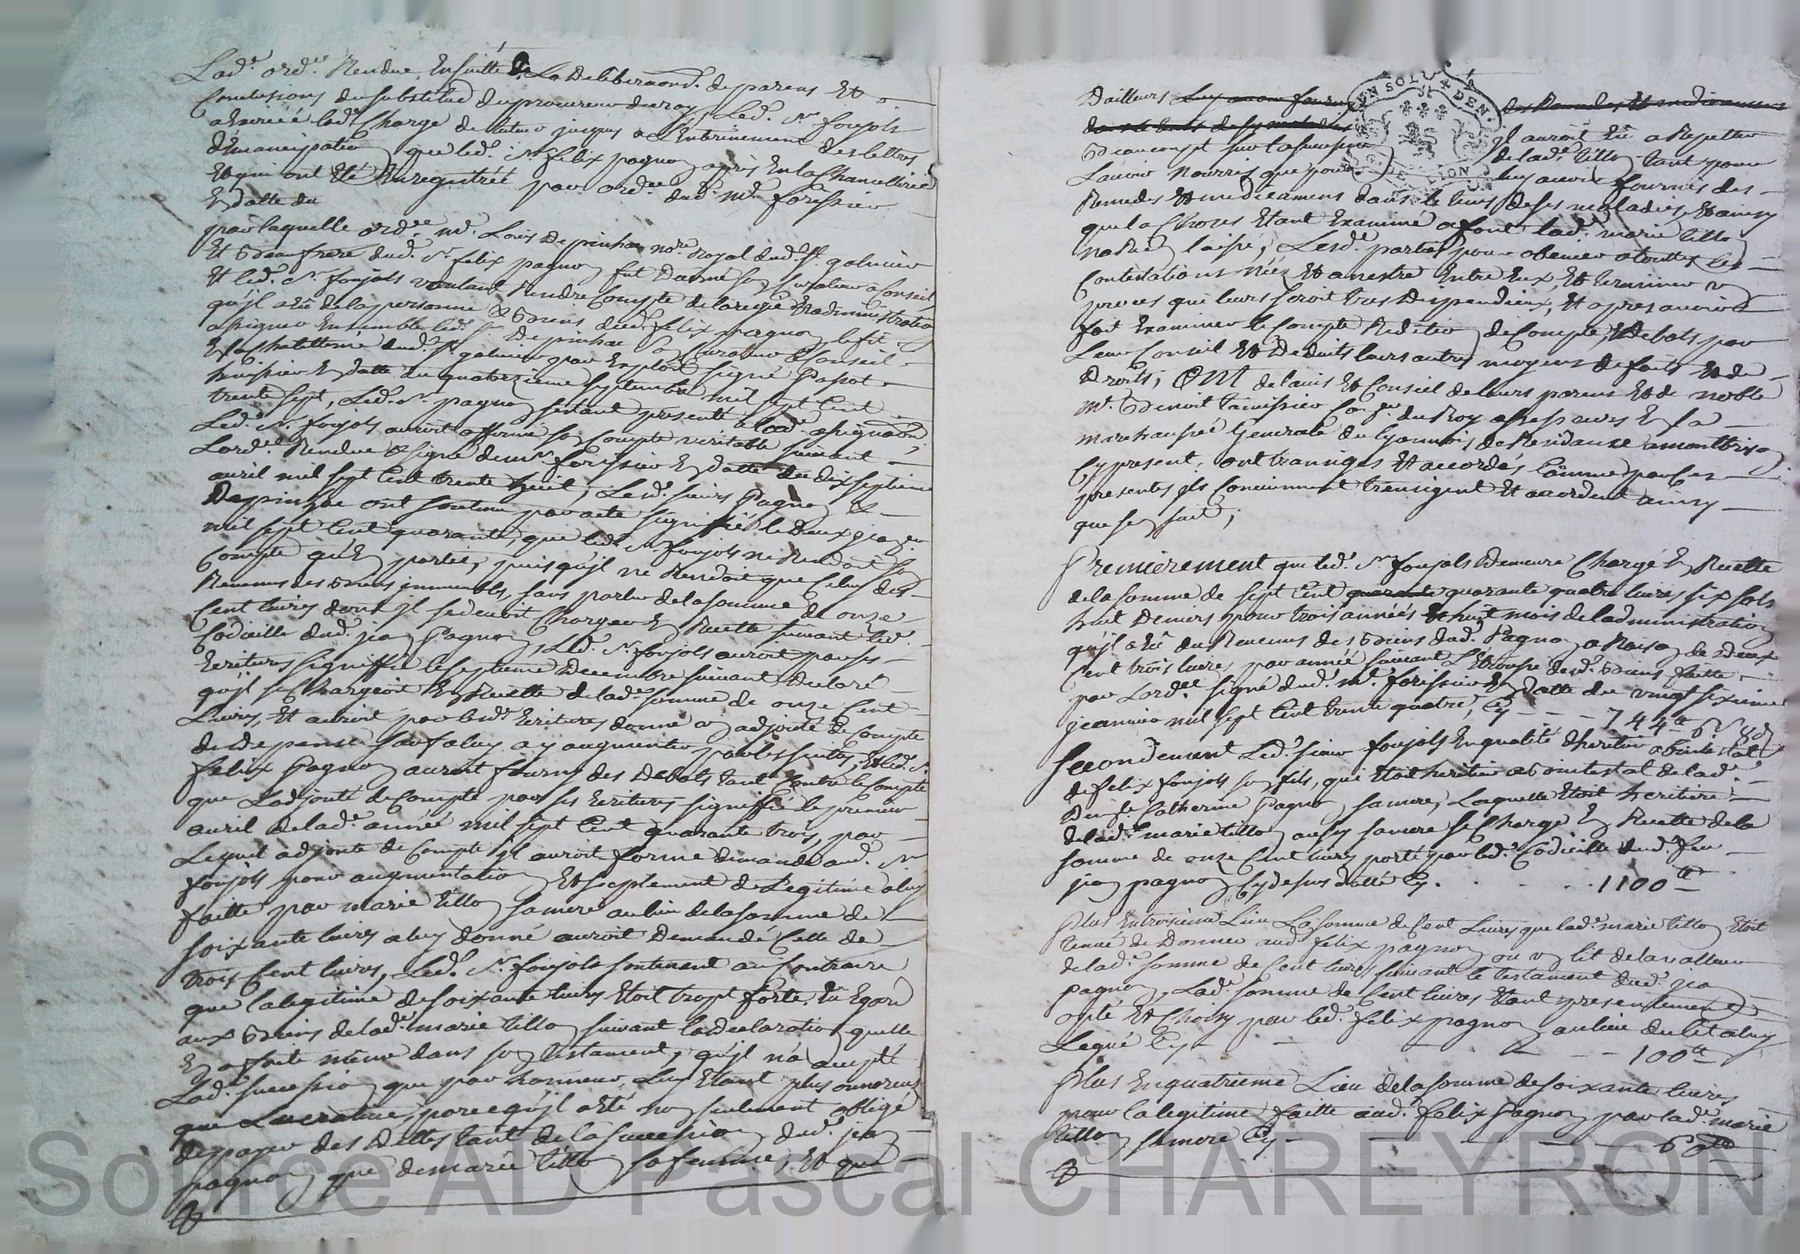 Lad.e ord.e Rendue, Ensuitte de La Deliberaõn. de parens Et
Conclusions du substitud du procureur du roy, Led. Sr. foujols
a Exercée lad.e Charge de tuteur jusques a L'Entérinement des lettres
d'Emancipation que led. Sr. felix pagnon a pris En la Chancellerie
Et qui ont été Enregistrée par ord.ce dud. Mr. forissier
En datte du
par laquelle ord.ce Mr. Louis Depinhac no.re royal dud. St. galmier
Et Beaufrere dud. Sr. felix pagnon fut Donné son Curateur a Conseil
Et led. Sr. foujols voulant Rendre Compte de la regie Et administration
qu'il a Eu de la personne & Biens dud. felix pagnon, le fit
assigner Ensemble led. Sr. Depinhac son Curateur a Conseil
En la Chatellenie dud. St. galmier par Exploit signé passot
huissier En datte du quatorzieme septembre mil sept Cent
trente sept, Led. Sr. pagnon s'estant presenté a lad. assignaõn,
Led. Sr. foujols auroit affirmé son Compte veritable suivant
Lord.ce Rendue & signé de mr. forissier En datte du dix septieme
avril mil sept Cent trente huit, Lesd. sieurs Pagnon &
Depinhac ont soutenu par acte signiffié le Deux
mil sept Cent quarante que led. Sr. foujols ne Rendoit son
Compte qu'En partie, puisqu'jl ne Rendoit que Celuy des
Revenus des Biens jmmeubles, sans parler de la somme de onze
Cent livres dont jl se devoit Charger En Recette suivant le
Codicille dud. jean Pagnon, Led. Sr. foujols auroit par ses
Ecritures signiffié le septieme Decembre suivant Declaré
qu'jl se Chargeoit En Recette de lad.e somme de onze Cent
Livres, Et auroit par lesd. Ecritures donné un adjouté de Compte
de Depense sauf a luy a y augmenter par les suittes, Et led. Sr.
felix Pagnon auroit fourny des Debats tant Contre le Compte
que Ladjouté de Compte par ses Ecritures signiffié le premier
avril de lad.e année mil sept Cent quarante trois, par
Lequel adjouté de Compte jl auroit formé demande aud. Sr.
foujols pour augmentation Et suplement de Legitime a luy
faitte par marie tillon sa mere au lieu de la somme de
soixante livres a luy donné auroit Demandé Celle de
trois Cent livres, Led. Sr. foujols soutenant au Contraire
que la legitime de soixante livres Etoit tropt forte, Eu Egard
aux Biens de lad.e marie tillon suivant la declaration quelle
En a faite même dans son testament, qu'jl n'a accepté
Lad.e succession que par honneur, Luy Etant plus onnereuse
que Lucrative, parce qu'jl a Eté non seulement obligé
De payer des Dettes tant de la succession dud. jean
pagnon que de marie tillon sa femme, Et que
Dailleurs
Il auroit Eu a Repetter
Beaucoupt sur la succession de lad.e tillon tant pour
Lavoir Nourrie que pour luy avoir fournis des
Remedes Et medicamens dans le tems de ses maladies, Et ainsy
que la Chose Etant Examiné a font lad.e marie tillon
na Rien laissé, Lesd. parties pour obvier a touttes les
Contestations Nées Et a nestre Entre Eux Et terminer un
proces que leurs seroit tres Despendieux, Et apres avoir
fait Examiner le Compte Reddition de Compte, & Debats par
Leur Conseil Et Deduits leurs autres moyens de fait Et de
Droits; Ont de lavis Et Conseil de leurs parens Et de noble
Mr. Benoit Con.er du Roy assesseur En la
marechaussée Generale du Lyonnois de Residance a montbrison
Cy present, ont transigés Et accordés Comme par Ces
presentes jls Conviennent transigent Et accordent ainsy
que s'en suit;
Premierement que led. Sr. foujols Demeure Chargé En Recette
de la somme de sept Cent quarante quarante quatre livres six sols
huit Deniers pour trois années & huit mois de ladministration
qu'jl a Eu du Revenus des Biens dud. Pagnon a Raison de Deux
Cent trois livres par année suivant L'Etrousse desd. Biens faitte
par Lord.ce signé dud. Mr. forissier En datte du vingt sixieme
jeanvier mil sept Cent trente quatre, Cy - - - 744tt 6s 8d
Secondement Led. sieur foujols En qualité dheritier abintestat
de felix foujols son fils, qui Etoit heritier abintestat de lad.
Catherine Pagnon sa mere, Laquelle Etoit heritiere
de lad. marie tillon aussy sa mere se Charge En Recette de la
somme de onze Cent livres porté par led. Codicille dud. feu
jean pagnon Cy dessus datté Cy. . . . 1100tt
Plus En troisieme Lieu La somme de Cent Livres que lad.e marie tillon Etoit
tenue de Donner aud. felix pagnon ou un lit de la valleur
de lad.e somme de Cent livres suivant le testament dud. jean
pagnon, Lad.e somme de Cent livres Etant presentement
opté Et Choisy par led. felix pagnon au lieu du lit a luy
Legué Cy - - - - 100tt
Plus En quatrieme Lieu de la somme de soixante livres
pour la legitime faitte aud. felix Pagnon par lad.e marie
tillon sa mere Cy - - - 60tt
EN SOL 4 DEN.
G. DE LION
Source AD Pascal CHAREYRON